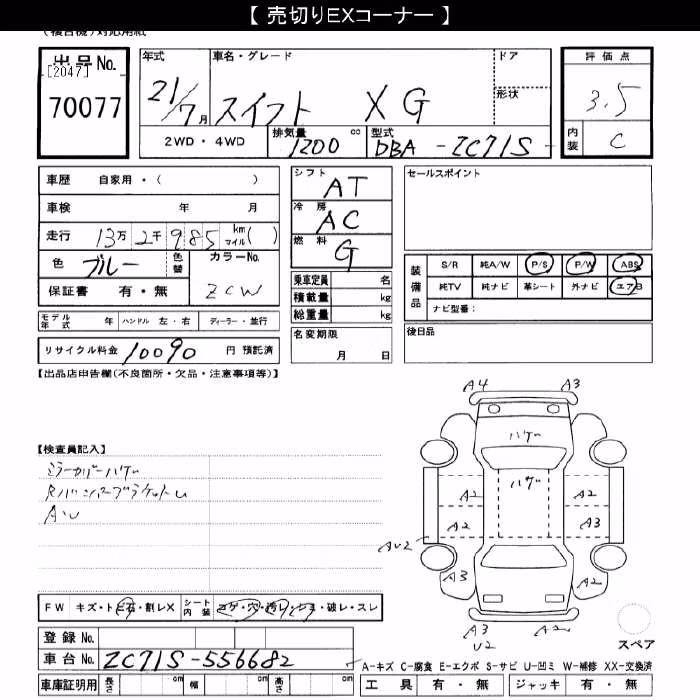 【 売切りEXコーナー 】
(複合機)対応用紙
出品No.
[2047]
70077
年式 車名・グレード ドア
21/7月 スイフト XG 形状
2WD・4WD 排気量 1200 cc 型式 DBA - ZC71S -
評価点
3.5
内装 C
車歴 自家用・( )
車検 年 月
走行 13万2千985 km マイル( )
色 ブルー 色替 カラーNo.
保証書 有・無 ZCW
モデル年式 年 ハンドル 左・右 ディーラー・並行
リサイクル料金 10090 円 預託済
シフト AT
冷房 AC
燃料 G
乗車定員 名
積載量 kg
総重量 kg
名変期限
月 日
セールスポイント
装備品 S/R 純A/W P/S P/W ABS
純TV 純ナビ 革シート 外ナビ エアB
ナビ型番:
後日品
【出品店申告欄(不良箇所・欠品・注意事項等)】
【検査員記入】
ミラーカバーハゲ
RバンパーブラケットU
AU
A4 A3
ハゲ
ハゲ
A2 A2
A2 A3
AU2
A3 A2
A3 A2
U2
スペア
FW キズ・トビ石・割レX シート内装 コゲ・穴・汚レ・シミ・破レ・スレ
登録No.
車台No. ZC71S-556682
車庫証明用 長さ cm 幅 cm 高さ cm
A-キズ C-腐食 E-エクボ S-サビ U-凹ミ W-補修 XX-交換済
工具 有・無 ジャッキ 有・無